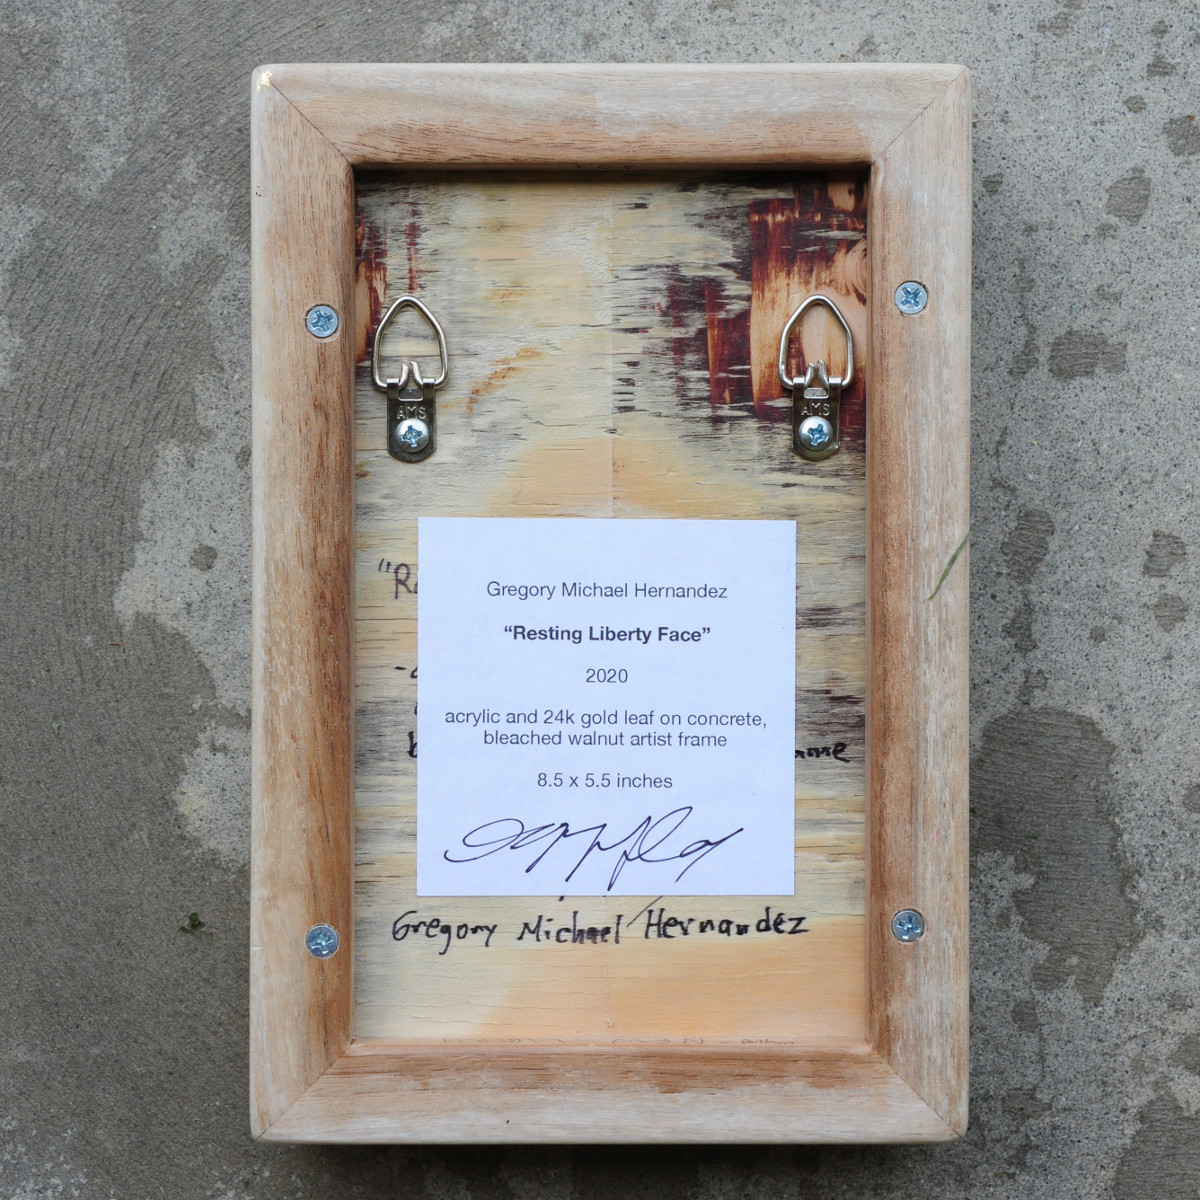 AMS
AMS
"R
Gregory Michael Hernandez
“Resting Liberty Face”
2020
acrylic and 24k gold leaf on concrete,
bleached walnut artist frame
8.5 x 5.5 inches
Gregory Michael Hernandez